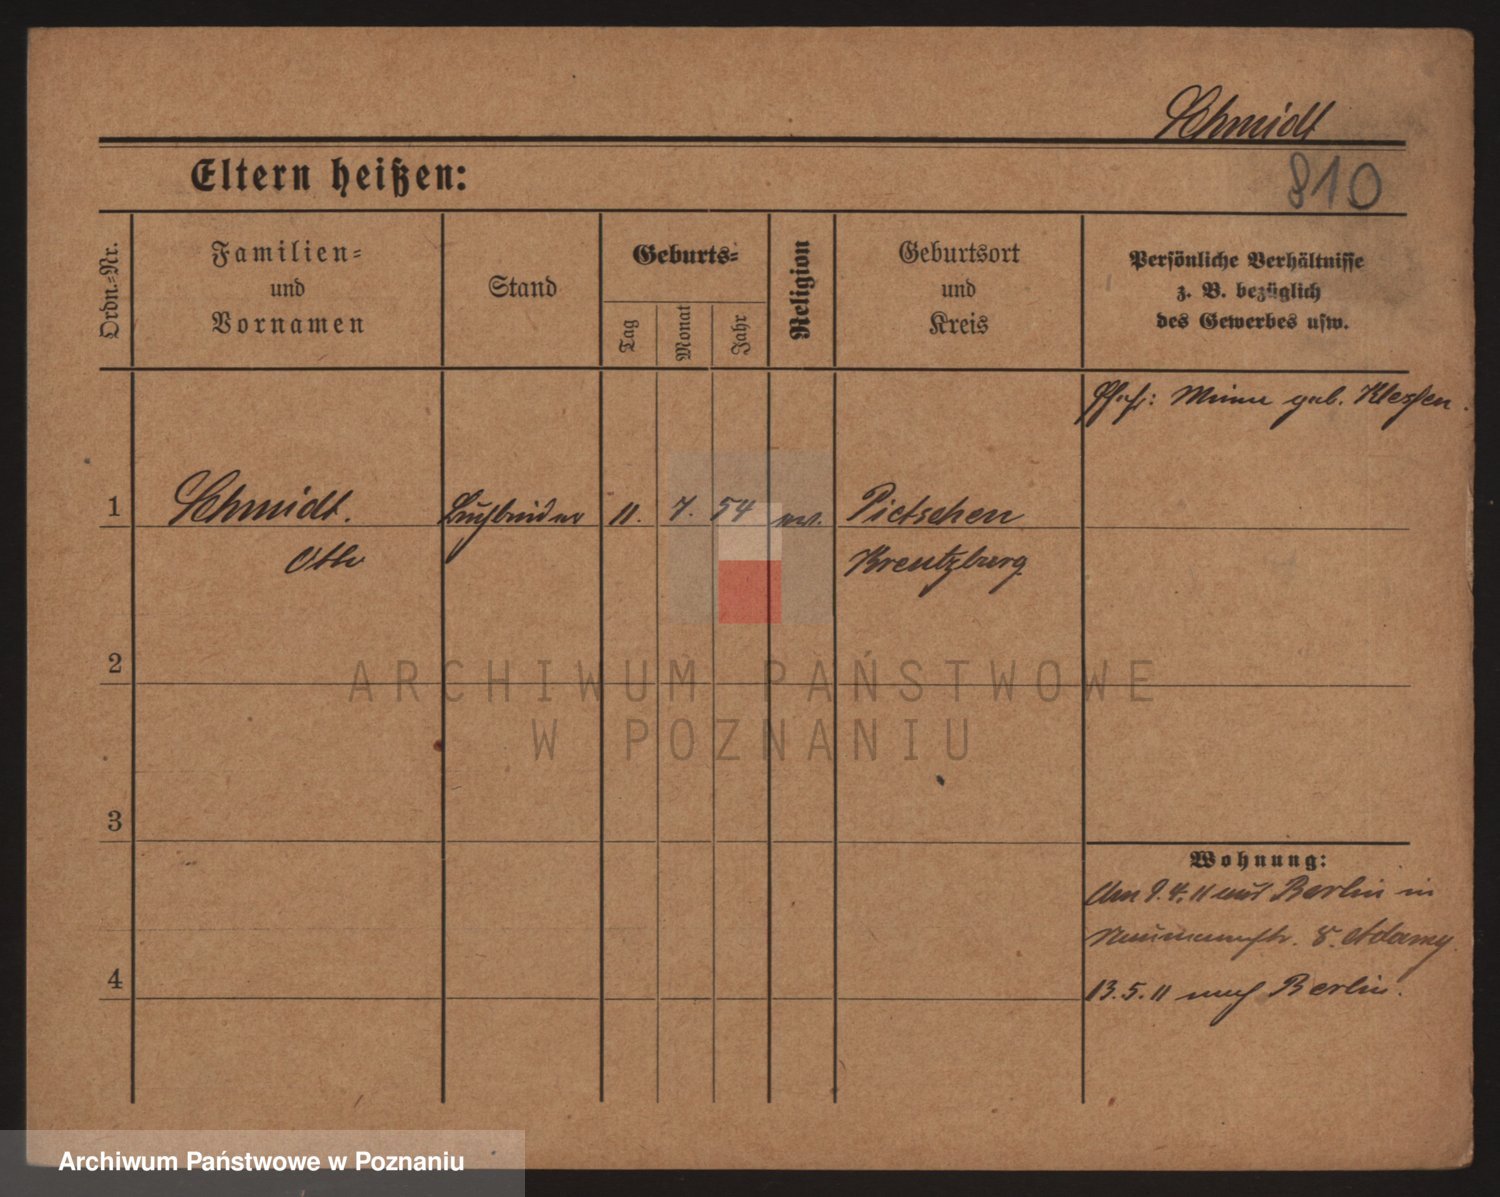 Schmidt
810
Eltern heißen:
Ordn.-Nr.
Familien-
und
Vornamen
Stand
Geburts-
Tag
Monat
Jahr
Religion
Geburtsort
und
Kreis
Persönliche Verhältnisse
z. B. bezüglich
des Gewerbes usw.
geb.
1
Schmidt.
Otto
11.
7.
54
ev.
Pietschen
Kreutzburg
2
3
4
Wohnung:
Am 9.4.11 aus Berlin in
Naumannstr. 8. Adamy.
13.5.11 nach Berlin.
ARCHIWUM PAŃSTWOWE
W POZNANIU
Archiwum Państwowe w Poznaniu